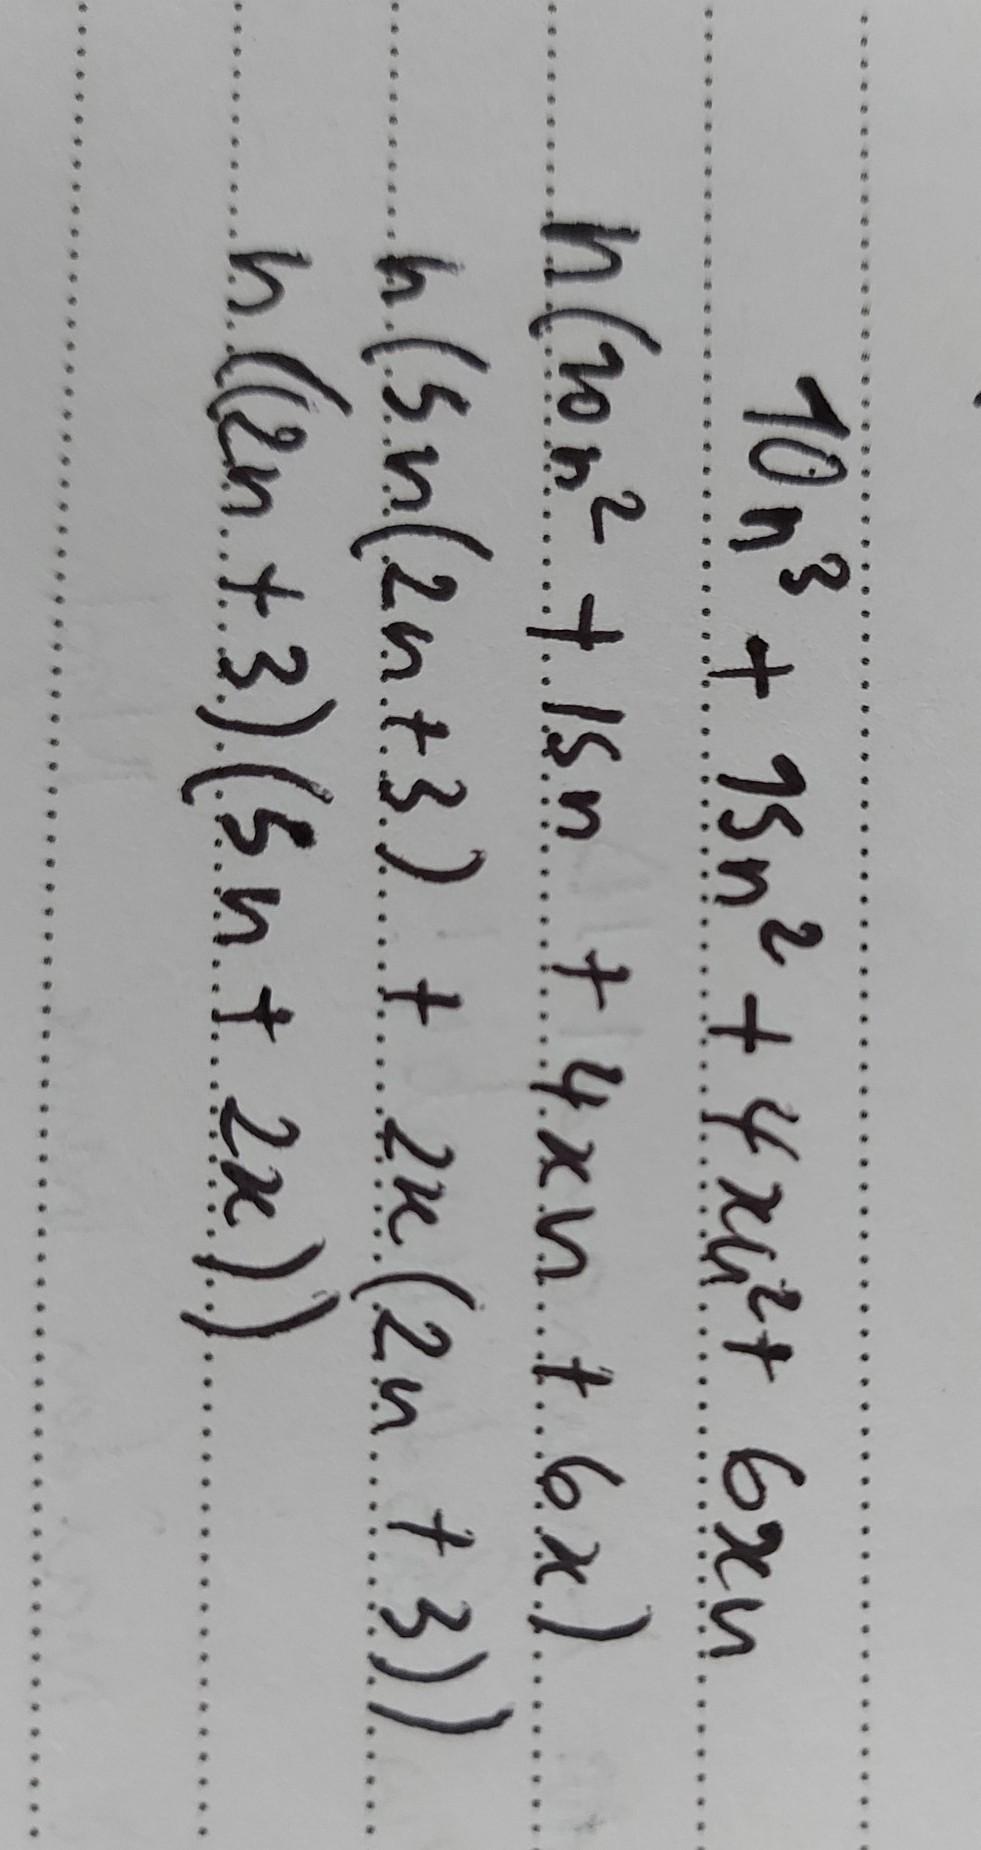 10n³ + 15n² + 4xn² + 6xn
n(10n² + 15n + 4xn + 6x)
n(5n(2n+3) + 2x(2n + 3))
n((2n + 3)(5n + 2x))